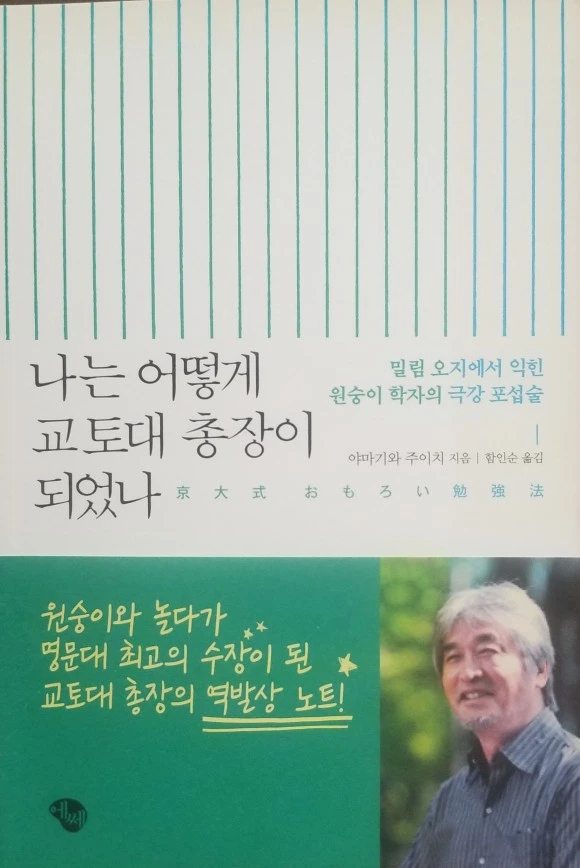 밀림 오지에서 익힌
원숭이 학자의 극강 포섭술
나는 어떻게
교토대 총장이
되었나
야마기와 주이치 지음 | 함인순 옮김
京大式 おもろい勉強法
원숭이와 놀다가
명문대 최고의 수장이 된
교토대 총장의 역발상 노트!
에쎄